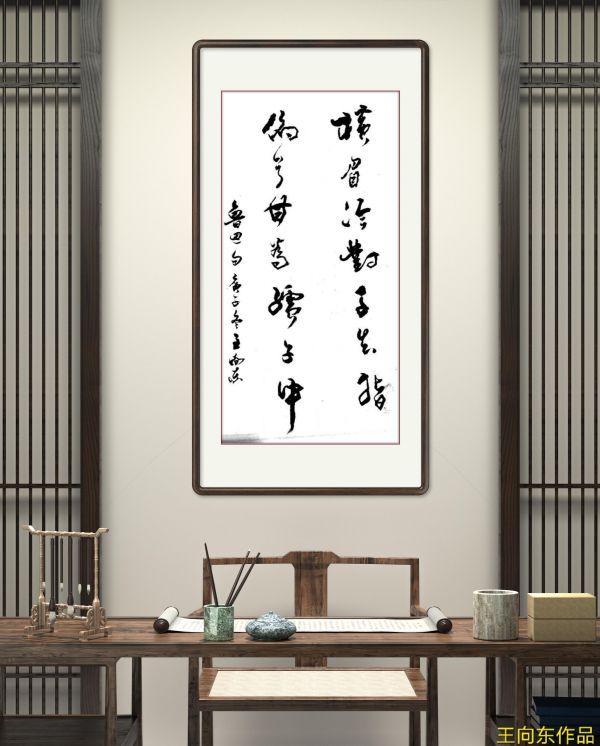 橫眉冷對千夫指
俯首甘為孺子牛
魯迅句庚子冬王向東
王向东作品